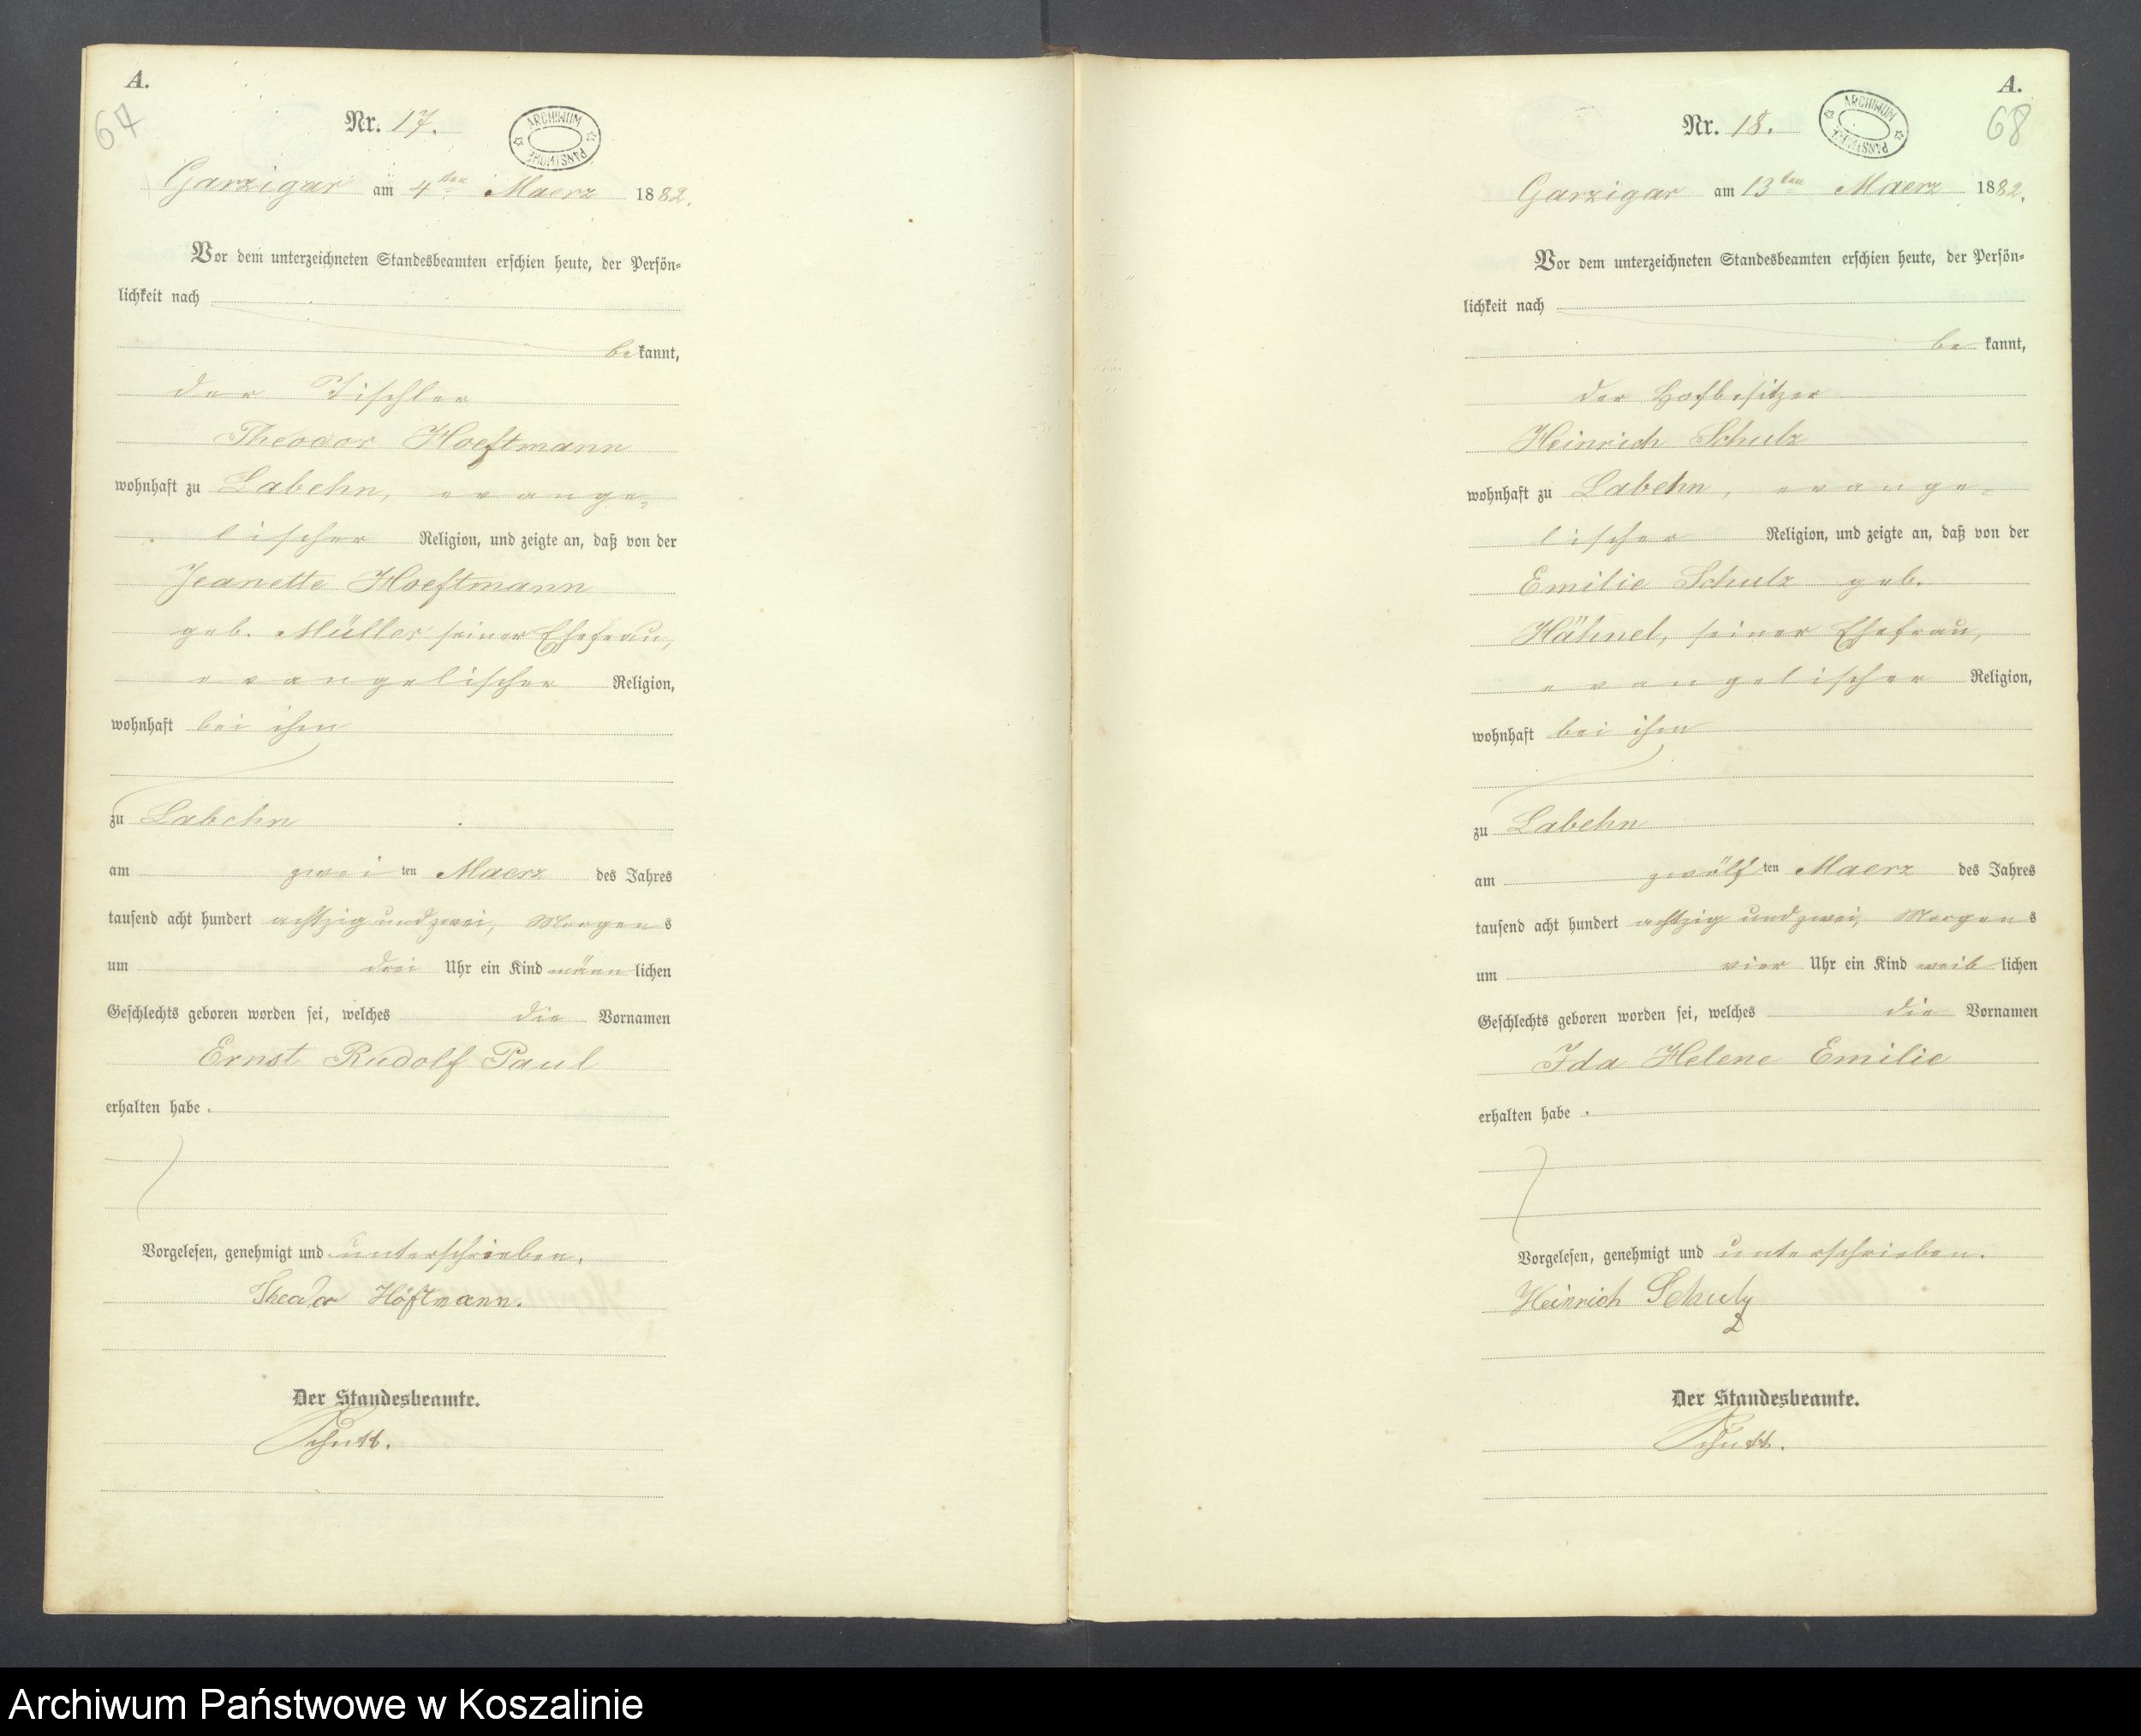 A.
67
Nr. 17.
ARCHIWUM PAŃSTWOWE
Garzigar am 4ten Maerz 1882.
Vor dem unterzeichneten Standesbeamten erschien heute, der Persön-
lichkeit nach
bekannt,
der Tischler
Theodor Hoeftmann
wohnhaft zu Labehn, evange-
lischer Religion, und zeigte an, daß von der
Jeanette Hoeftmann
geb. Müller seiner Ehefrau,
evangelischer Religion,
wohnhaft bei ihm
zu Labehn
am zweiten Maerz des Jahres
tausend acht hundert achtzig und zwei, Morgens
um drei Uhr ein Kind männlichen
Geschlechts geboren worden sei, welches die Vornamen
Ernst Rudolf Paul
erhalten habe.
Vorgelesen, genehmigt und unterschrieben.
Theodor Höftmann.
Der Standesbeamte.
A.
68
Nr. 18.
ARCHIWUM PAŃSTWOWE
Garzigar am 13ten Maerz 1882.
Vor dem unterzeichneten Standesbeamten erschien heute, der Persön-
lichkeit nach
bekannt,
der Hofbesitzer
Heinrich Schulz
wohnhaft zu Labehn, evange-
lischer Religion, und zeigte an, daß von der
Emilie Schulz geb.
Hähnel, seiner Ehefrau,
evangelischer Religion,
wohnhaft bei ihm
zu Labehn
am zwölften Maerz des Jahres
tausend acht hundert achtzig und zwei, Morgens
um vier Uhr ein Kind weiblichen
Geschlechts geboren worden sei, welches die Vornamen
Ida Helene Emilie
erhalten habe.
Vorgelesen, genehmigt und unterschrieben.
Heinrich Schulz
2
Der Standesbeamte.
Archiwum Państwowe w Koszalinie